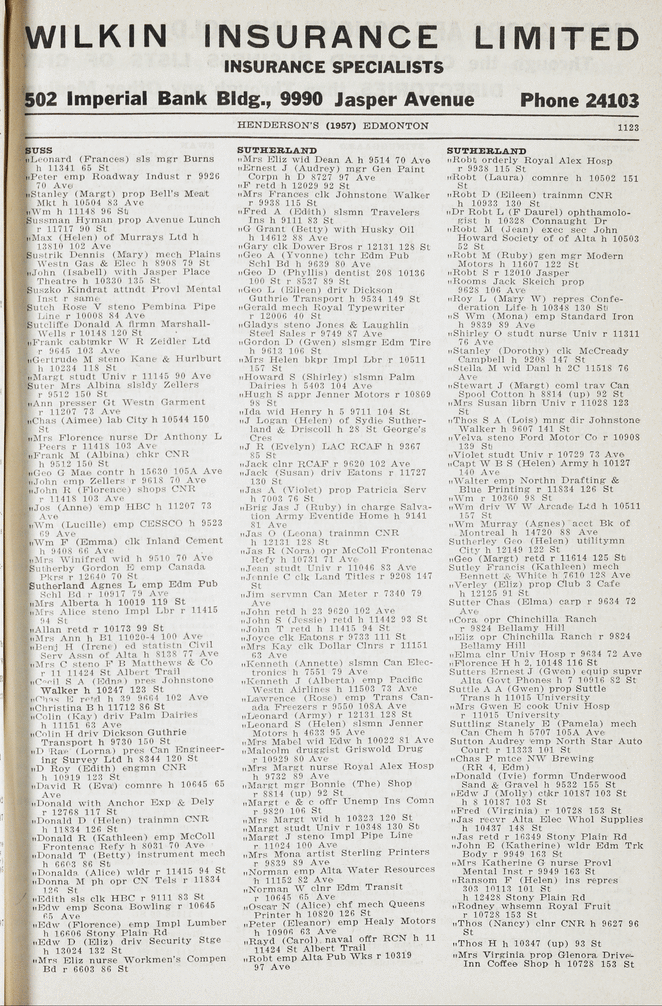 WILKIN INSURANCE LIMITED
INSURANCE SPECIALISTS
502 Imperial Bank Bldg., 9990 Jasper Avenue Phone 24103
HENDERSON'S (1957) EDMONTON 1123
SUSS
"Leonard (Frances) sls mgr Burns
h 11341 65 St
"Peter emp Roadway Indust r 9926
70 Ave
"Stanley (Margt) prop Bell's Meat
Mkt h 10504 83 Ave
"Wm h 11148 96 St
Sussman Hyman prop Avenue Lunch
r 11717 90 St
"Max (Helen) of Murrays Ltd h
13810 102 Ave
Sustrik Dennis (Mary) mech Plains
Westn Gas & Elec h 8908 79 St
"John (Isabell) with Jasper Place
Theatre h 10330 135 St
Suszko Kindrat attndt Provl Mental
Inst r same
Sutch Rose V steno Pembina Pipe
Line r 10008 84 Ave
Sutcliffe Donald A firmn Marshall-
Wells r 10148 120 St
"Frank cabtmkr W R Zeidler Ltd
r 9645 103 Ave
"Gertrude M steno Kane & Hurlburt
h 10234 118 St
"Margt studt Univ r 11145 90 Ave
Suter Mrs Albina slsldy Zellers
r 9512 150 St
"Ann presser Gt Westn Garment
r 11207 73 Ave
"Chas (Aimee) lab City h 10544 150
St
"Mrs Florence nurse Dr Anthony L
Peers r 11418 103 Ave
"Frank M (Albina) chkr CNR
h 9512 150 St
"Geo G Mae contr h 15630 105A Ave
"John emp Zellers r 9618 70 Ave
"John R (Florence) shops CNR
r 11418 103 Ave
"Jos (Anne) emp HBC h 11207 73
Ave
"Wm (Lucille) emp CESSCO h 9523
69 Ave
"Wm F (Emma) clk Inland Cement
h 9408 66 Ave
"Mrs Winifred wid h 9510 70 Ave
Sutherby Gordon E emp Canada
Pkrs r 12640 70 St
Sutherland Agnes L emp Edm Pub
Schl Bd r 10917 79 Ave
"Mrs Alberta h 10019 119 St
"Mrs Alice steno Impl Lbr r 11415
94 St
"Allan retd r 10173 99 St
"Mrs Ann h B1 11020-4 100 Ave
"Benj H (Irene) ed statistn Civil
Serv Assn of Alta h 8138 77 Ave
"Mrs C steno F B Matthews & Co
r 11 11424 St Albert Trail
"Cecil S A (Edna) pres Johnstone
Walker h 10247 123 St
"Chas E retd h 39 9664 102 Ave
"Christina B h 11712 86 St
"Colin (Kay) driv Palm Dairies
h 11151 63 Ave
"Colin H driv Dickson Guthrie
Transport h 9730 150 St
"D Rae (Lorna) pres Can Engineer-
ing Survey Ltd h 8344 120 St
"D Roy (Edith) engmn CNR
h 10919 123 St
"David R (Eva) comnre h 10645 65
Ave
"Donald with Anchor Exp & Dely
r 12768 117 St
"Donald D (Helen) trainmn CNR
h 11834 126 St
"Donald R (Kathleen) emp McColl
Frontenac Refy h 8031 70 Ave
"Donald T (Betty) instrument mech
h 6603 86 St
"Donalda (Alice) wldr r 11415 94 St
"Donna M ph opr CN Tels r 11834
126 St
"Edith sls clk HBC r 9111 83 St
"Edw emp Scona Bowling r 10645
65 Ave
"Edw (Florence) emp Impl Lumber
h 16606 Stony Plain Rd
"Edw D (Eliz) driv Security Stge
h 13024 132 St
"Mrs Eliz nurse Workmen's Compen
Bd r 6603 86 St
SUTHERLAND
"Mrs Eliz wid Dean A h 9514 70 Ave
"Ernest J (Audrey) mgr Gen Paint
Corpn h D 8727 97 Ave
"F retd h 12029 92 St
"Mrs Frances clk Johnstone Walker
r 9938 115 St
"Fred A (Edith) slsmn Travelers
Ins h 9111 83 St
"G Grant (Betty) with Husky Oil
h 14612 88 Ave
"Gary clk Dower Bros r 12131 128 St
"Geo A (Yvonne) tchr Edm Pub
Schl Bd h 9639 80 Ave
"Geo D (Phyllis) dentist 208 10136
100 St r 8537 89 St
"Geo L (Eileen) driv Dickson
Guthrie Transport h 9534 149 St
"Gerald mech Royal Typewriter
r 12006 40 St
"Gladys steno Jones & Laughlin
Steel Sales r 9749 87 Ave
"Gordon D (Gwen) slsmgr Edm Tire
h 9613 106 St
"Mrs Helen bkpr Impl Lbr r 10511
157 St
"Howard S (Shirley) slsmn Palm
Dairies h 5403 104 Ave
"Hugh S appr Jenner Motors r 10809
98 St
"Ida wid Henry h 5 9711 104 St
"J Logan (Helen) of Sydie Suther-
land & Driscoll h 28 St George's
Cres
"J R (Evelyn) LAC RCAF h 9367
85 St
"Jack clnr RCAF r 9620 102 Ave
"Jack (Susan) driv Eatons r 11727
130 St
"Jas A (Violet) prop Patricia Serv
h 7003 76 St
"Brig Jas J (Ruby) in charge Salva-
tion Army Eventide Home h 9141
81 Ave
"Jas O (Leona) trainmn CNR
h 12131 128 St
"Jas R (Nora) opr McColl Frontenac
Refy h 10731 71 Ave
"Jean studt Univ r 11046 83 Ave
"Jennie C clk Land Titles r 9208 147
St
"Jim servmn Can Meter r 7340 79
Ave
"John retd h 23 9620 102 Ave
"John S (Jessie) retd h 11442 93 St
"John T retd h 11415 94 St
"Joyce clk Eatons r 9733 111 St
"Mrs Kay clk Dollar Clnrs r 11151
63 Ave
"Kenneth (Annette) slsmn Can Elec-
tronics h 7551 79 Ave
"Kenneth J (Alberta) emp Pacific
Westn Airlines h 11503 73 Ave
"Lawrence (Rose) emp Trans Can-
ada Freezers r 9550 108A Ave
"Leonard (Army) r 12131 128 St
"Leonard S (Helen) slsmn Jenner
Motors h 4633 95 Ave
"Mrs Mabel wid Edw h 10022 81 Ave
"Malcolm druggist Griswold Drug
r 10929 80 Ave
"Mrs Margt nurse Royal Alex Hosp
h 9732 89 Ave
"Margt mgr Bonnie (The) Shop
r 8814 (up) 92 St
"Margt e & c offr Unemp Ins Comn
r 9820 106 St
"Mrs Margt wid h 10323 120 St
"Margt studt Univ r 10348 130 St
"Margt J steno Impl Pipe Line
r 11024 100 Ave
"Mrs Mona artist Sterling Printers
r 9839 89 Ave
"Norman emp Alta Water Resources
h 11152 82 Ave
"Norman W clnr Edm Transit
r 10645 65 Ave
"Oscar N (Alice) chf mech Queens
Printer h 10820 126 St
"Peter (Eleanor) emp Healy Motors
h 10906 63 Ave
"Rayd (Carol) naval offr RCN h 11
11424 St Albert Trail
"Robt emp Alta Pub Wks r 10319
97 Ave
SUTHERLAND
"Robt orderly Royal Alex Hosp
r 9938 115 St
"Robt (Laura) comnre h 10502 151
St
"Robt D (Eileen) trainmn CNR
h 10933 130 St
"Dr Robt L (F Daurel) ophthamolo-
gist h 10328 Connaught Dr
"Robt M (Jean) exec sec John
Howard Society of of Alta h 10503
52 St
"Robt M (Ruby) gen mgr Modern
Motors h 11607 122 St
"Robt S r 12010 Jasper
"Rooms Jack Skeich prop
9628 106 Ave
"Roy L (Mary W) repres Confe-
deration Life h 10348 130 St
"S Wm (Mona) emp Standard Iron
h 9839 89 Ave
"Shirley O studt nurse Univ r 11311
76 Ave
"Stanley (Dorothy) clk McCready
Campbell h 9208 147 St
"Stella M wid Danl h 2C 11518 76
Ave
"Stewart J (Margt) coml trav Can
Spool Cotton h 8814 (up) 92 St
"Mrs Susan librn Univ r 11028 123
St
"Thos S A (Lois) mng dir Johnstone
Walker h 9607 141 St
"Velva steno Ford Motor Co r 10908
139 St
"Violet studt Univ r 10729 73 Ave
"Capt W B S (Helen) Army h 10127
140 Ave
"Walter emp Northn Drafting &
Blue Printing r 11834 126 St
"Wm r 10360 98 St
"Wm driv W W Arcade Ltd h 10511
157 St
"Wm Murray (Agnes) acct Bk of
Montreal h 14720 88 Ave
Sutherley Geo (Helen) utilitymn
City h 12149 122 St
"Geo (Margt) retd r 11614 125 St
Sutley Francis (Kathleen) mech
Bennett & White h 7610 128 Ave
"Verley (Eliz) prop Club 3 Cafe
h 12125 91 St
Sutter Chas (Elma) carp r 9634 72
Ave
"Cora opr Chinchilla Ranch
r 9824 Bellamy Hill
"Eliz opr Chinchilla Ranch r 9824
Bellamy Hill
"Elma clnr Univ Hosp r 9634 72 Ave
"Florence H h 2, 10148 116 St
Sutters Ernest J (Gwen) equip supvr
Alta Govt Phones h 7 10916 82 St
Suttle A A (Gwen) prop Suttle
Trans h 11015 University
"Mrs Gwen E cook Univ Hosp
r 11015 University
Suttling Stanely E (Pamela) mech
Can Chem h 5707 105A Ave
Sutton Audrey emp North Star Auto
Court r 11333 101 St
"Chas P mtce NW Brewing
(RR 4, Edm)
"Donald (Ivie) formn Underwood
Sand & Gravel h 9532 155 St
"Edw J (Molly) ctkr 10187 103 St
h 8 10187 103 St
"Fred (Virginia) r 10728 153 St
"Jas recvr Alta Elec Whol Supplies
h 10437 148 St
"Jas retd r 16349 Stony Plain Rd
"John E (Katherine) wldr Edm Trk
Body r 9949 163 St
"Mrs Katherine G nurse Provl
Mental Inst r 9949 163 St
"Ransom F (Helen) ins repres
303 10113 101 St
h 12428 Stony Plain Rd
"Rodney whsemn Royal Fruit
r 10728 153 St
"Thos (Nancy) clnr CNR h 9627 96
St
"Thos H h 10347 (up) 93 St
"Mrs Virginia prop Glenora Drive-
Inn Coffee Shop h 10728 153 St